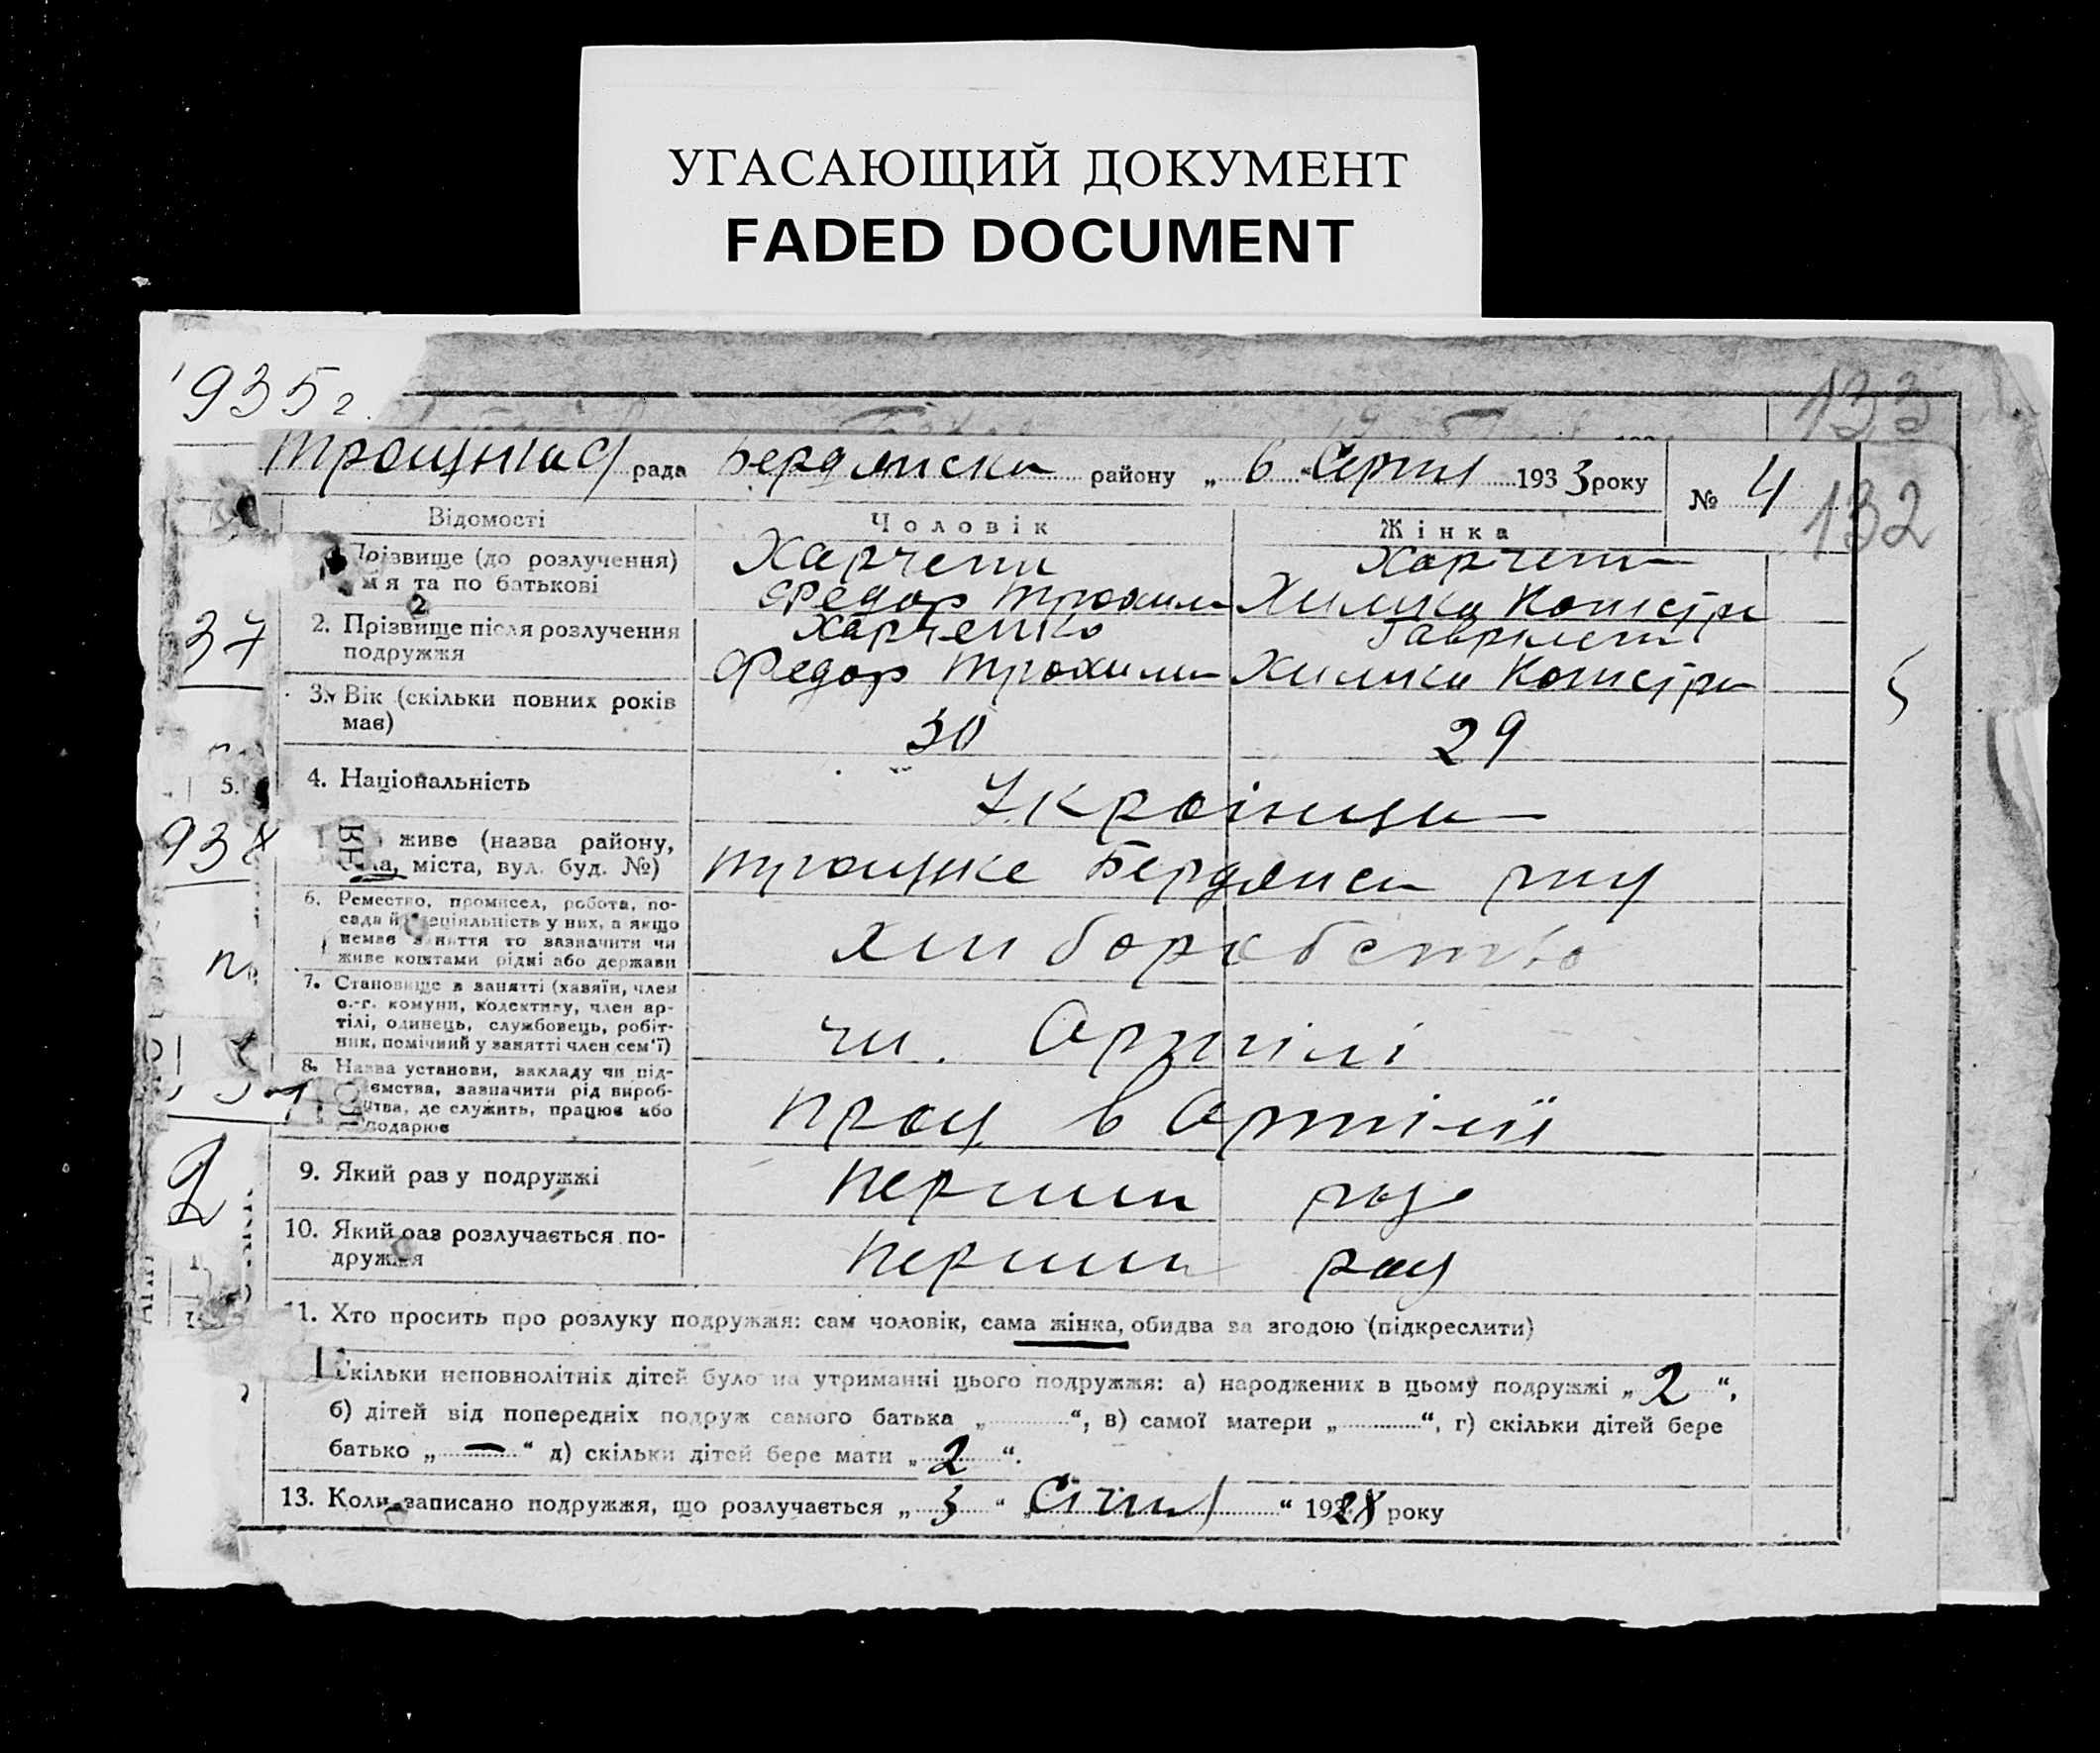 УГАСАЮЩИЙ ДОКУМЕНТ
FADED DOCUMENT
1935 г.
133
рада Бердянськ району „ 6 “ Серпня 1933 року № 4
132
Відомості Чоловік Жінка
Прізвище (до розлучення) Харчен Харчен
мя та по батькові Федор Трохим
2
2. Прізвище після розлучення Харченко Гаврилен
подружжя Федор Трохим
37
3. Вік (скільки повних років
має) 30 29
4. Національність Украінци
5.
938
живе (назва району,
міста, вул. буд. №) Троицке Бердянск
6. Ремество, промисел, робота, по-
сада й спеціяльність у них, а якщо
немає заняття то зазначити чи
живе коштами рідні або держави
хліборобство
7. Становище в занятті (хазяїн, член
с.-г. комуни, колективу, член ар-
тілі, одинець, службовець, робіт-
ник, помічний у занятті член сем'ї)
чл. Артілі
8. Назва установи, закладу чи під-
ємства, зазначити рід вироб-
цтва, де служить, працює або
подарює
прац в Артілі
9. Який раз у подружжі перший раз
10. Який раз розлучається по- перший раз
дружжя
11. Хто просить про розлуку подружжя: сам чоловік, сама жінка, обидва за згодою (підкреслити)
Скільки неповнолітніх дітей було на утриманні цього подружжя: а) народжених в цьому подружжі „ 2 “,
б) дітей від попередніх подруж самого батька „ “, в) самої матери „ “, г) скільки дітей бере
батько „ — “ д) скільки дітей бере мати „ 2 “.
13. Коли записано подружжя, що розлучається „ 3 “ „ Січня “ 1928 року